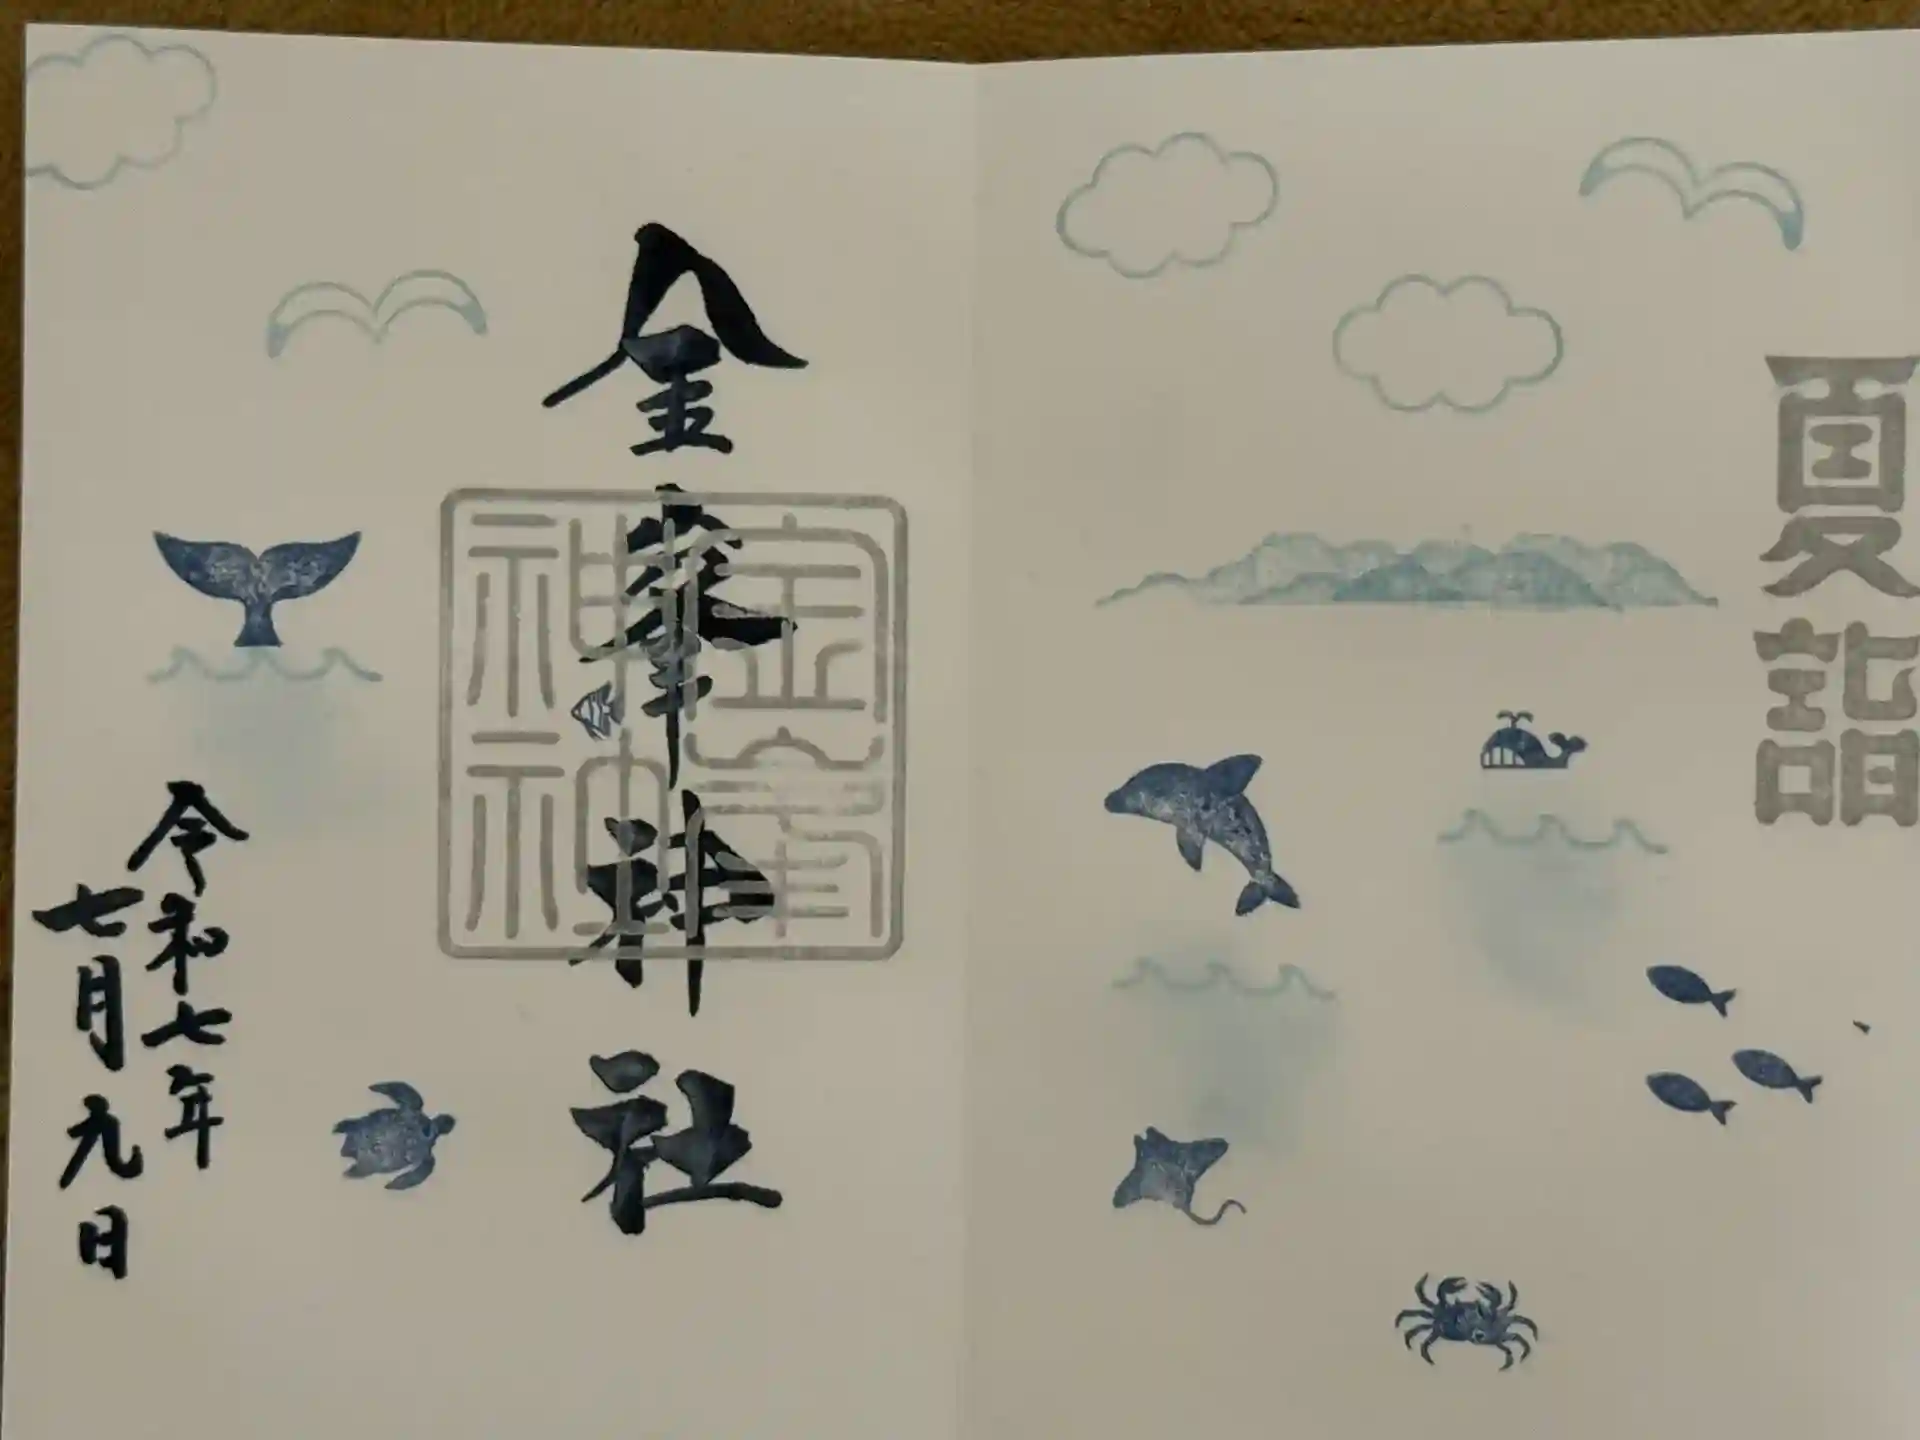 夏詣
金峯神社
金峯
神社
令和七年
七月九日